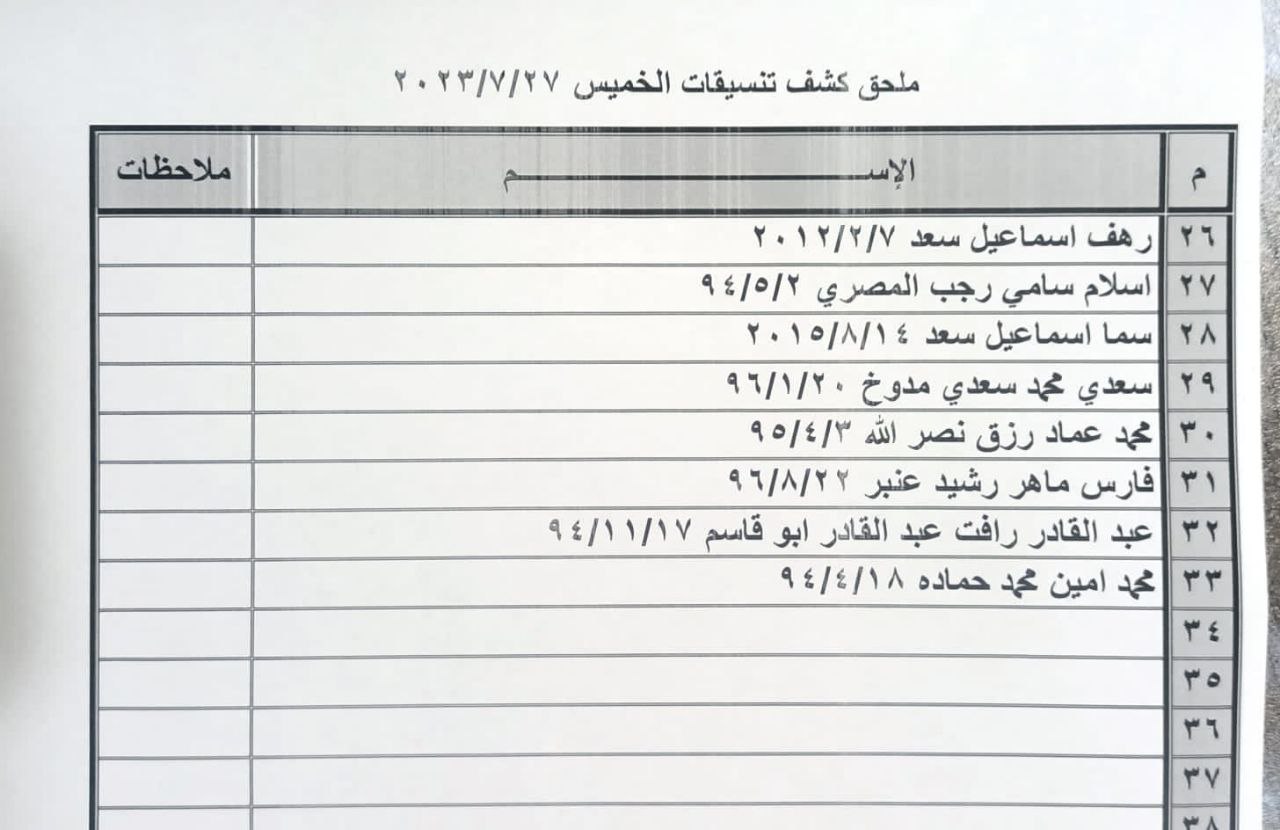 ملحق كشف تنسيقات الخميس ٢٠٢٣/٧/٢٧
م الإســــــــم ملاحظات
٢٦ رهف اسماعيل سعد ٢٠١٢/٢/٧
٢٧ اسلام سامي رجب المصري ٩٤/٥/٢
٢٨ سما اسماعيل سعد ٢٠١٥/٨/١٤
٢٩ سعدي محمد سعدي مدوخ ٩٦/١/٢٠
٣٠ محمد عماد رزق نصر الله ٩٥/٤/٣
٣١ فارس ماهر رشيد عنبر ٩٦/٨/٢٢
٣٢ عبد القادر رافت عبد القادر ابو قاسم ٩٤/١١/١٧
٣٣ محمد امين محمد حماده ٩٤/٤/١٨
٣٤
٣٥
٣٦
٣٧
٣٨